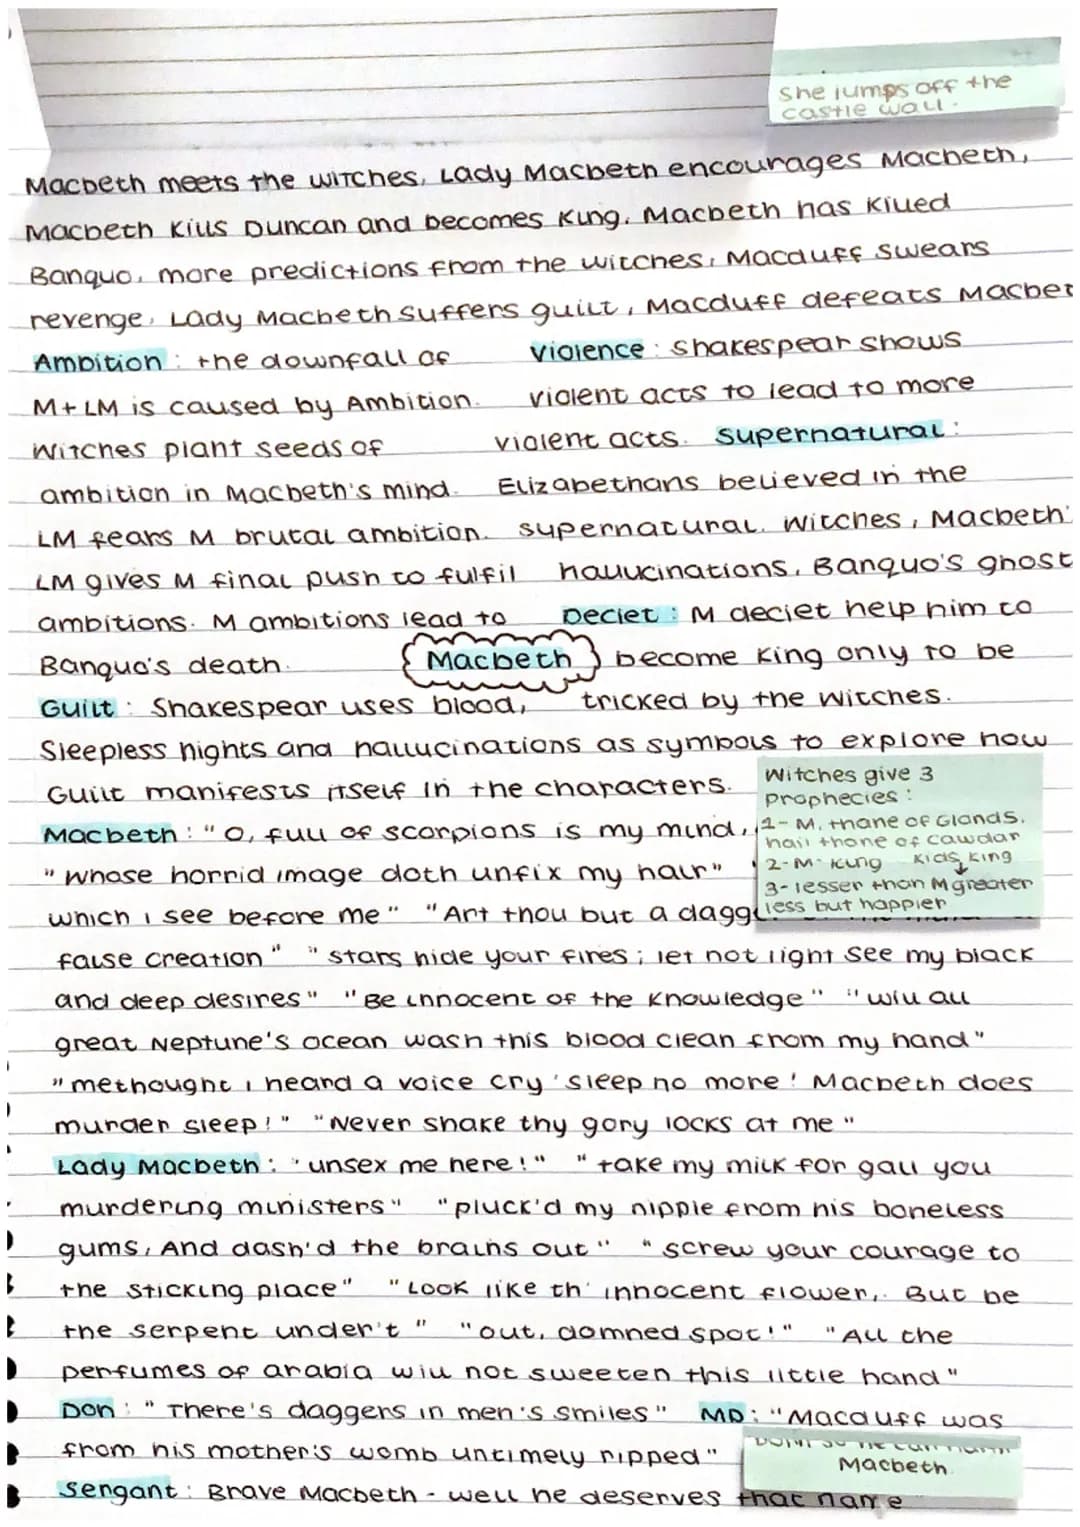 She jumps off the
castle wall.
Macbeth meets the witches, Lady Macbeth encourages Macbeth,
Macbeth kills Duncan and becomes King, Macbeth has killed
Banquo, more predictions from the witches, Macduff swears
revenge, Lady Macbeth suffers guilt, Macduff defeats Macbet
Ambition : the downfall of
M+LM is caused by Ambition.
Witches plant seeds of
ambition in Macbeth's mind.
LM fears M brutal ambition.
LM gives M final push to fulfil
ambitions. M ambitions lead to
Banquo's death.
Violence : Shakespear shows
violent acts to lead to more
violent acts. Supernatural :
Elizabethans believed in the
supernatural. Witches, Macbeth'
hallucinations, Banquo's ghost
Deciet : M deciet help him to
become King only to be
tricked by the witches.
Macbeth
Guilt : Shakespear uses blood,
Sleepless nights and hallucinations as symbols to explore how
Guilt manifests itself in the characters.
Witches give 3
prophecies :
1- M. thane of Glands.
hail thane of cawdar
2- M- King kids King
3- lesser than M greater
less but happier
Macbeth : "O, full of scorpions is my mind,
"Whose horrid image doth unfix my hair"
which I see before me" "Art thou but a dagg
false creation" "stars hide your fires; let not light see my black
and deep desires" "Be innocent of the knowledge" "will all
great Neptune's ocean wash this blood clean from my hand"
"methought I heard a voice cry 'sleep no more! Macbeth does
murder sleep!" "Never shake thy gory locks at me"
Lady Macbeth : "unsex me here!" "take my milk for gall you
murdering ministers" "pluck'd my nipple from his boneless
gums, And dash'd the brains out" "screw your courage to
the sticking place" "Look like th' innocent flower, But be
the serpent under't" "out, damned spot!" "All the
perfumes of arabia will not sweeten this little hand"
Don : "There's daggers in men's smiles" MD : "Macduff was
from his mother's womb untimely ripped"
Macbeth.
Sengant : Brave Macbeth - well he deserves that name